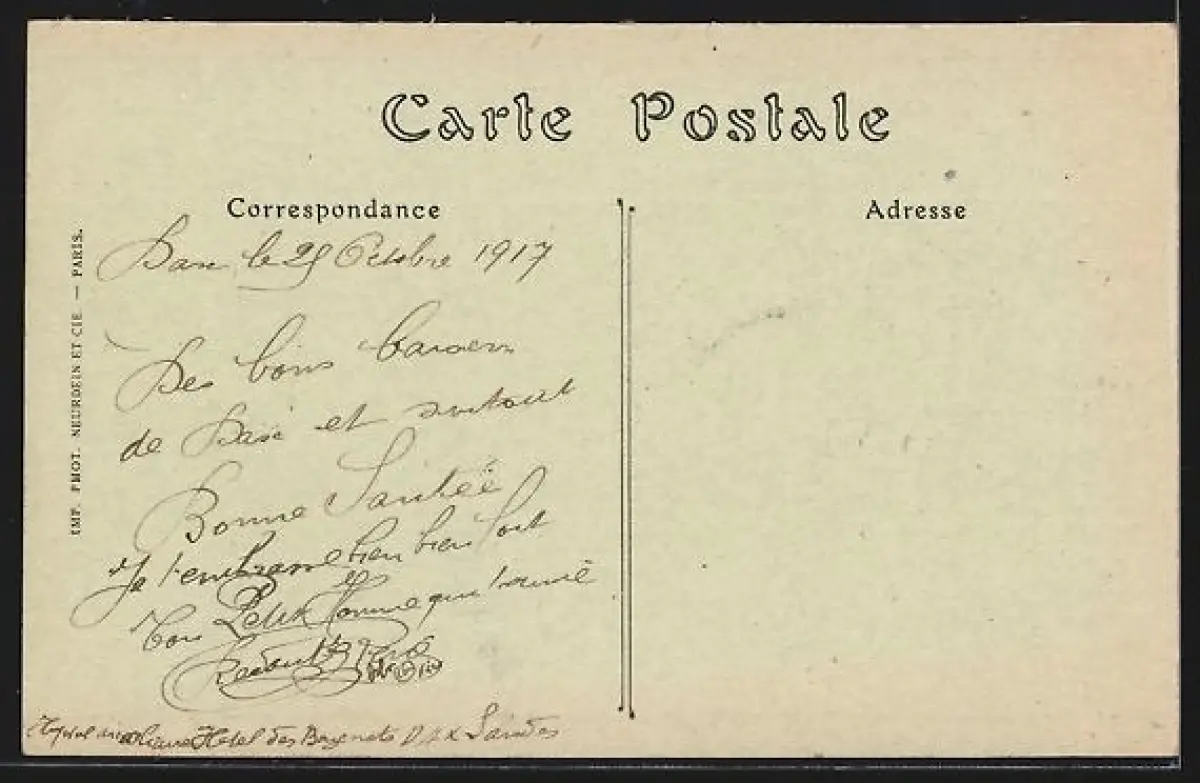 Carte Postale
Correspondance
Adresse
IMP. PHOT. NEURDEIN ET CIE. — PARIS.
Dax le 25 Octobre 1917
Des bons baisers
de Dax et surtout
Bonne Santée
Je t'embrasse bien bien fort
Ton Petit Homme qui t'aime
Hôtel des Baignots DAX Landes